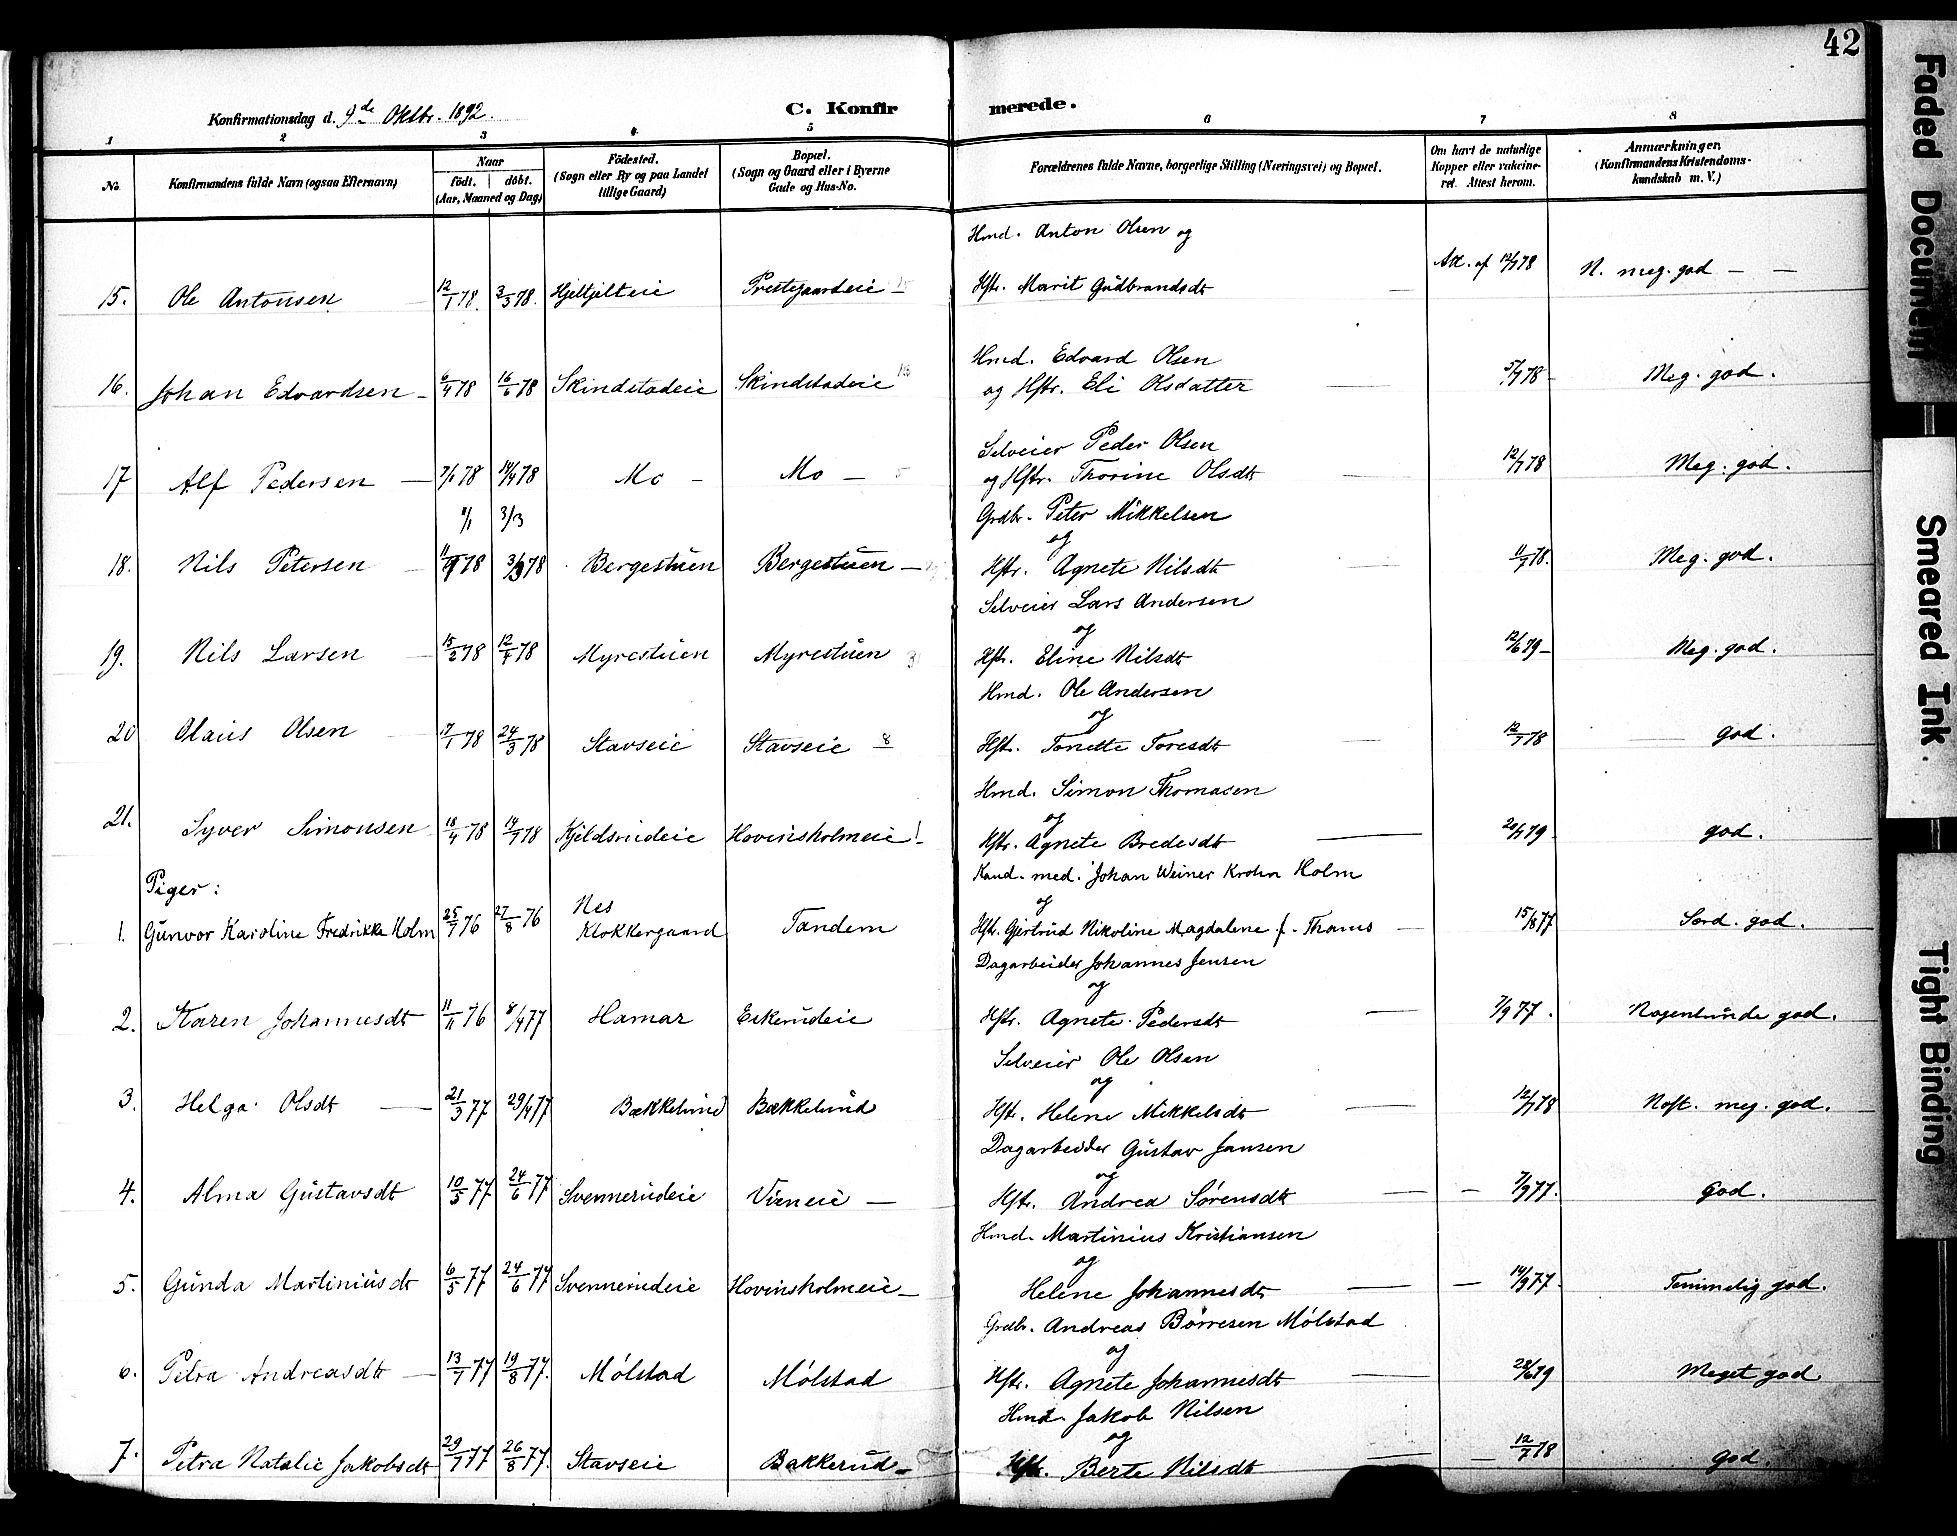 42
Konfirmationsdag d. 9de Oktbr. 1892.
C. Konfirmerede.
1 2 3 4 5 6 7 8
No.
Konfirmandens fulde Navn (ogsaa Efternavn)
Naar
födt. döbt.
(Aar, Maaned og Dag)
Födested.
(Sogn eller By og paa Landet
tillige Gaard)
Bopæl.
(Sogn og Gaard eller i Byerne
Gade og Hus-No.
Forældrenes fulde Navne, borgerlige Stilling (Næringsvei) og Bopæl.
Om havt de naturlige
Kopper eller vakcine-
ret. Attest herom.
Anmærkninger.
(Konfirmandens Kristendoms-
kundskab m. V.)
Hmd. Anton Olsen og
15. Ole Antonsen 12/1 78. 3/3 78. Hjeltjelteie Prestgaardseie Hstr. Marit Gudbrandsdt Att. af 12/7 78 N. meg. god
Hmd. Edvard Olsen
16. Johan Edvardsen 6/4 78 16/6 78 Skindstadeie Skindstadeie og Hstr. Eli Olsdatter 5/7 78 Meg. god.
Selveier Peder Olsen
17 Alf Pedersen 7/1 78 14/4 78 Mo Mo og Hstr. Thorine Olsdt 12/7 78 Meg. god.
11/1 3/3
Grdbr. Peter Mikkelsen
og
18. Nils Petersen 78 3/3 78 Bergestuen Bergestuen Hstr. Agnete Nilsdt 11/7 78. Meg. god.
Selveier Lars Andersen
og
19. Nils Larsen 15/2 78 12/4 78 Myrestuen Myrestuen Hstr. Eline Nilsdt 12/6 79 Meg. god.
Hmd. Ole Andersen
og
20 Olaus Olsen 78 24/3 78 Stavseie Stavseie 8 Hstr. Tonette Toresdt 12/7 78 god.
Hmd. Simon Thomasen
og
21. Syver Simonsen 18/4 78 14/7 78 Kjeldsrudeie Hovinsholmeie Hstr. Agnete Bredesdt 20/7 79 god.
Piger:
Kand. med. Johan Weiner Krohn Holm
og
1. Gunvor Karoline Fredrikke Holm 25/7 76 27/8 76 Nes Klokkergaard Tandem Hstr. Gjertrud Nikoline Magdalene f. Thams 15/8 77 Særd. god.
Dagarbeider Johannes Jensen
og
2. Karen Johannesdt 11/11 76 8/4 77 Hamar Eskerudeie Hstr. Agnete Pedersdt 7/9 77. Nogenlunde god.
Selveier Ole Olsen
og
3. Helga Olsdt 21/3 77 29/4 77 Bækkelund Bækkelund Hstr. Helene Mikkelsdt 12/7 78 Noft. meg. god.
Dagarbeider Gustav Jansen
og
4. Alma Gustavsdt 10/5 77 24/6 77 Svennerudeie Vieneie Hstr. Andrea Sørensdt 7/9 77. God.
Hmd. Martinius Kristiansen
og
5. Gunda Martiniusdt 6/5 77 24/6 77 Svennerudeie Hovinsholmeie Helene Johannesdt 14/9 77. Temmelig god.
Grdbr. Andreas Børresen Mølstad
og
6. Petra Andreasdt 13/7 77 19/8 77. Mølstad Mølstad Hstr. Agnete Johannesdt 28/6 79 Meget god
Hmd. Jakob Nilsen
og
7. Petra Natalie Jakobsdt 29/7 77 26/8 77. Stavseie Bakkerud Hstr. Berte Nilsdt 12/7 78 god.
Faded Document
Smeared Ink.
Tight Binding